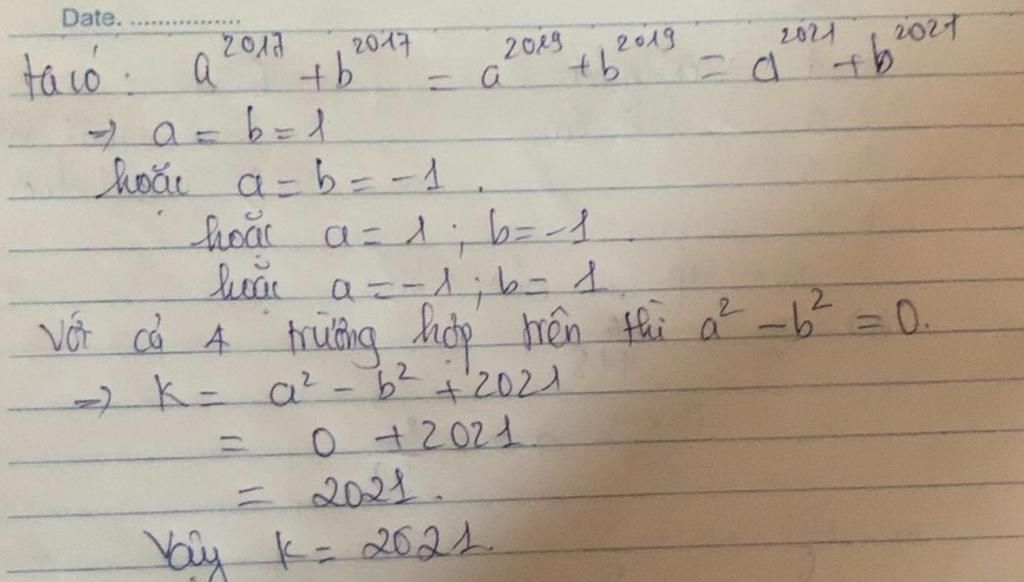 Date. ................
ta có : a^2017 + b^2017 = a^2019 + b^2019 = a^2021 + b^2021
⇒ a = b = 1
hoặc a = b = -1 .
hoặc a = 1 ; b = -1
hoặc a = -1 ; b = 1
Với cả 4 trường hợp trên thì a² - b² = 0.
⇒ K = a² - b² + 2021
= 0 + 2021
= 2021.
Vậy K = 2021.